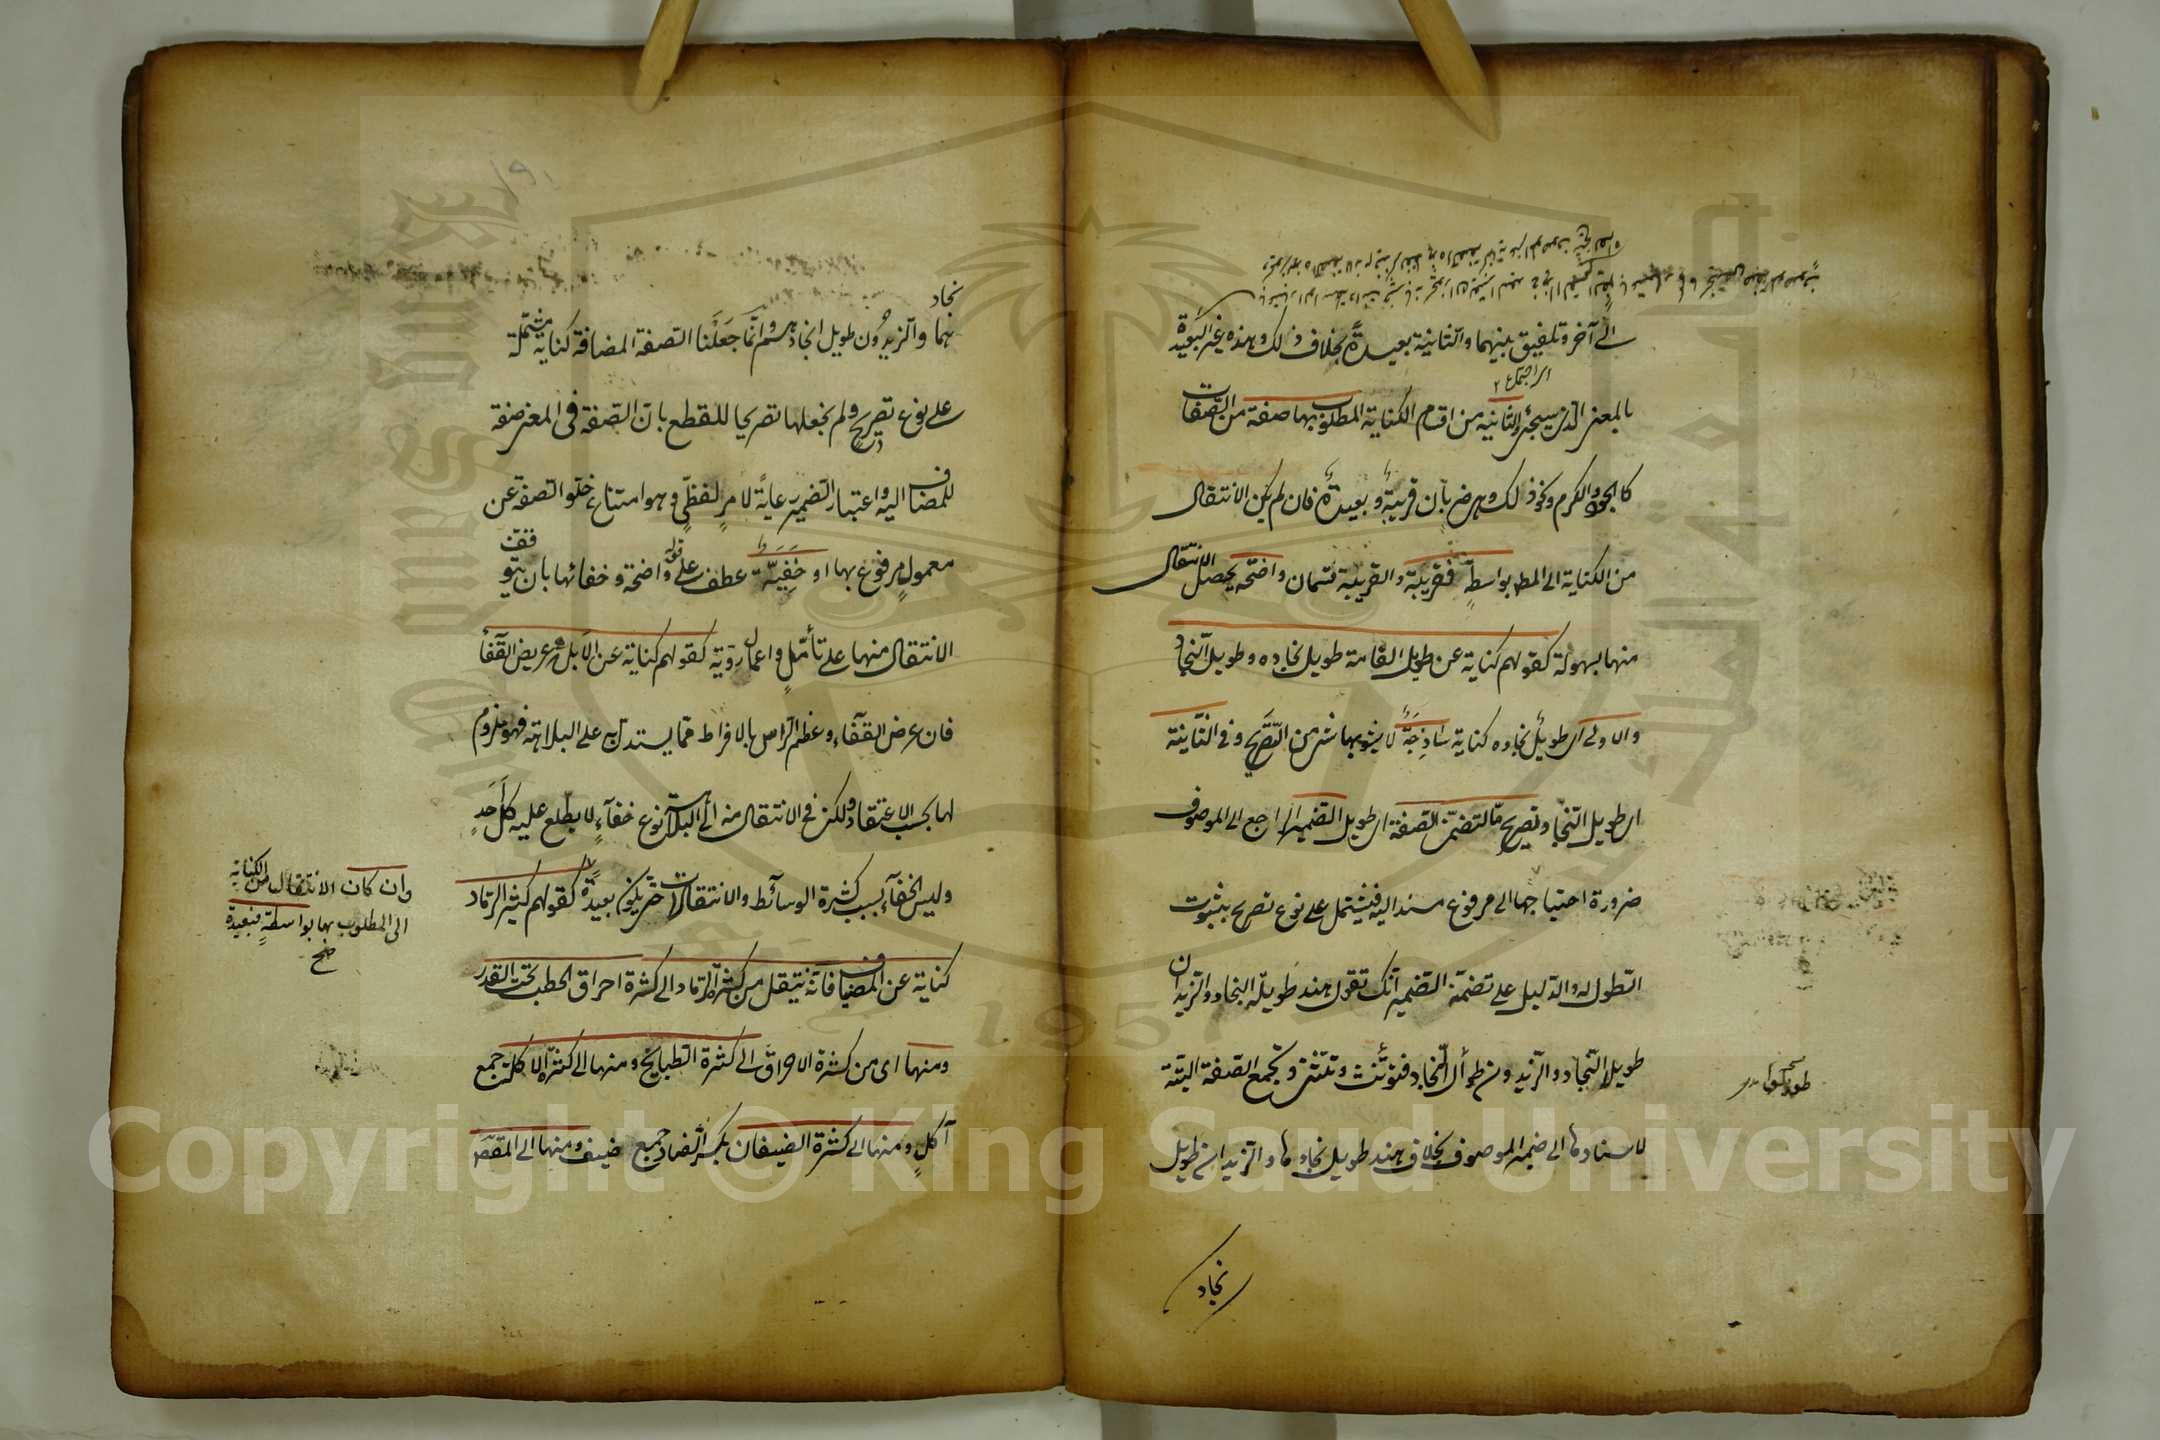 إلى آخر وتلفيق بينهما والثانية بعيدة بخلاف ذلك وهذه غير البعيدة
بالمعنى الذي سيجئ والثانيه من اقسام الكناية المطلوب بها صفة من الصفات
كالجود والكرم ونحو ذلك وهي ضربان قريبة وبعيدة فان لم يكن الانتقال
من الكناية الى المط بواسطة فقريبة والقريبة قسمان واضحة يحصل الانتقال
منها بسهولة كقولهم كناية عن طويل القامة طويل نجاده وطويل النجاد
والاولى اى طويل نجاده كناية ساذجة لا يشوبها شئ من التصريح وفى الثانية
اى طويل النجاد تصريح ما لتضمن الصفة اى طويل الضمير الراجع الى الموصوف
ضرورة احتياجها الى مرفوع مسند اليه فيشتمل على نوع تصريح بثبوت
الطول له والدليل على تضمنه الضمير انك تقول هند طويلة النجاد والزيدان
طويلا النجاد والزيدون طوال النجاد فتؤنث وتثنى وتجمع الصفة البتة
لاسنادها الى ضمير الموصوف بخلاف هند طويل نجادها والزيدان طويل
نجاد
نجاد
هما والزيدون طويل نجادهم وانما جعلنا الصفة المضافة كناية مشتملة
على نوع تصريح ولم نجعلها تصريحا للقطع بان الصفة فى المعنى صفة
للمضاف اليه واعتبار الضمير رعاية لامر لفظي وهو امتناع خلو الصفة عن
معمول مرفوع بها او خفية عطف على واضحة وخفائها بان يتوقف
الانتقال منها على تأمل واعمال روية كقولهم كناية عن الابله عريض القفا
فان عرض القفاء وعظم الراس بالافراط مما يستدل به على البلاهة فهو ملزوم
لها بحسب الاعتقاد ولكن فى الانتقال منه الى البلاهة نوع خفاء لا يطلع عليه كل احد
وليس الخفاء بسبب كثرة الوسائط والانتقالات حتى يكون بعيدة كقولهم كثير الرماد
كناية عن المضياف فانه ينتقل من كثرة الرماد الى كثرة احراق الحطب تحت القدر
ومنها اى من كثرة الاحراق الى كثرة الطبايخ ومنها الى كثرة الاكلة جمع
آكل ومنها الى كثرة الضيفان بكسر الضاد جمع ضيف ومنها الى المقصود
وان كان الانتقال من الكناية
الى المطلوب بها بواسطة فبعيدة
صح
Copyright © King Saud University
1957